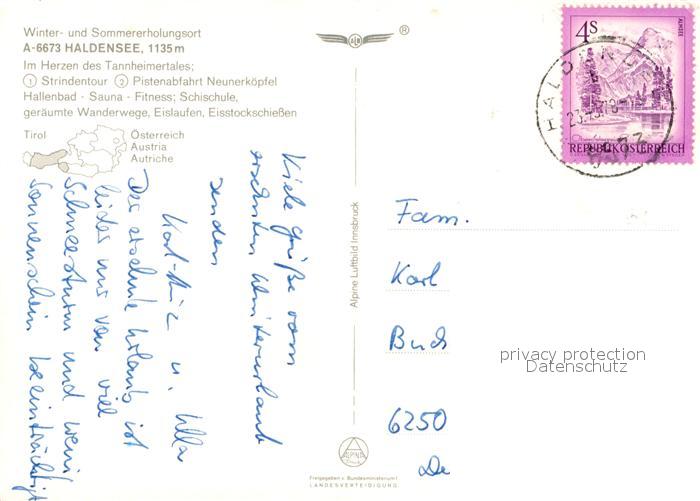 Winter- und Sommererholungsort
A-6673 HALDENSEE, 1135 m
Im Herzen des Tannheimertales;
① Strindentour ② Pistenabfahrt Neunerköpfel
Hallenbad - Sauna - Fitness; Schischule,
geräumte Wanderwege, Eislaufen, Eisstockschießen
Tirol
Österreich
Austria
Autriche
Viele Grüße vom
ersehnten Winterurlaub
senden
Karl-Heinz u. Ulla
Der ersehnte Urlaub ist
leider nur von viel
Schneesturm und wenig
Sonnenschein beeinträchtigt
Alpine Luftbild Innsbruck
ALPINE
Freigegeben v. Bundesministerium f.
LANDESVERTEIDIGUNG
®
4 S
ALMSEE
REPUBLIK ÖSTERREICH
HALDENSEE
6673
Fam.
Karl
Buch
6250
privacy protection
Datenschutz